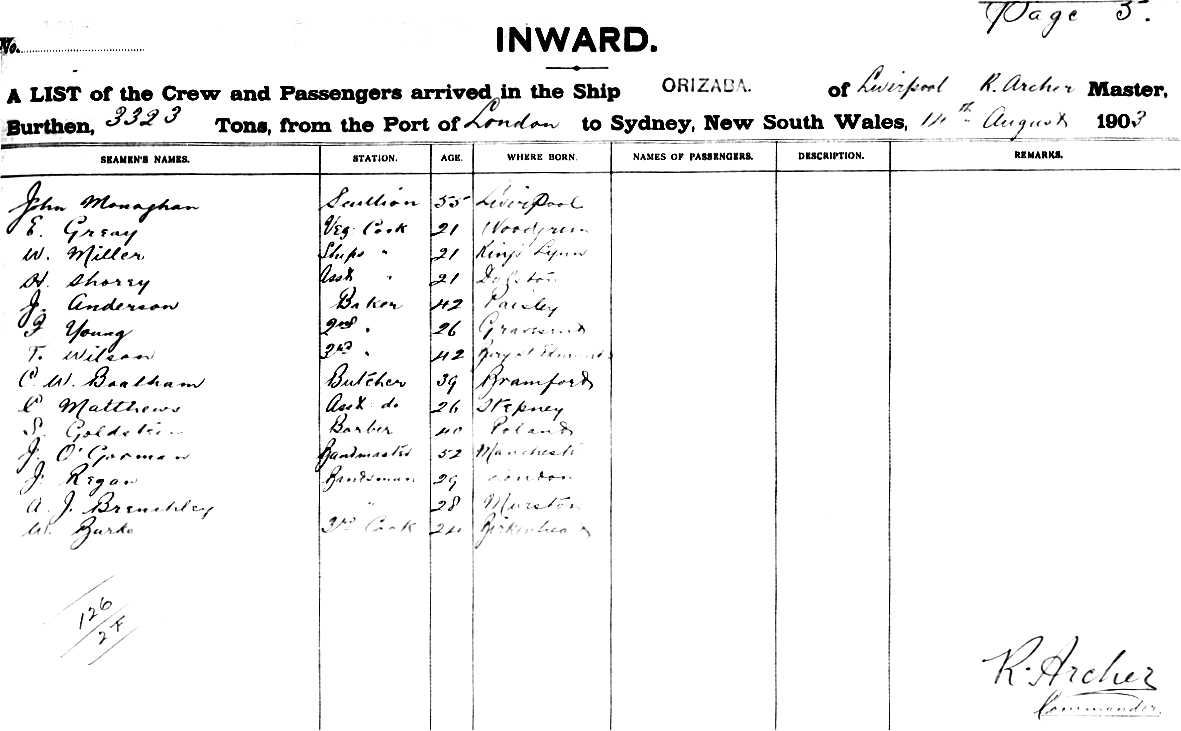 Page 5.
No.
INWARD.
A LIST of the Crew and Passengers arrived in the Ship ORIZABA. of Liverpool R. Archer Master,
Burthen, 3323 Tons, from the Port of London to Sydney, New South Wales, 14th August 1903
SEAMEN'S NAMES. STATION. AGE. WHERE BORN. NAMES OF PASSENGERS. DESCRIPTION. REMARKS.
John Monaghan Scullion 55 Liverpool
E. Greay Veg. Cook 21 Woodgreen
W. Miller Ships " 21 Kings Lynn
H. Shorey Asst " 21 Dalston
J. Anderson Baker 42 Paisley
F Young 2nd " 26 Gravesend
T. Wilson 3rd " 42
C. W. Boatham Butcher 39 Bramford
C Matthews Asst do 26 Stepney
S. Goldstein Barber 40 Poland
J. O'Gorman Bandmaster 52 Manchester
J. Regan Bandsman 29 London
A. J. Brenchley " 28 Murston
W. Burke 3rd Cook 24 Birkenhead
126
R. Archer
Commander